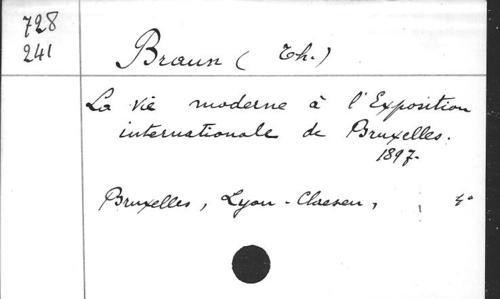 728
241
Braun (Th.)
La vie moderne à l'Exposition
internationale de Bruxelles.
1897.
Bruxelles, Lyon-Claesen, ; 4°